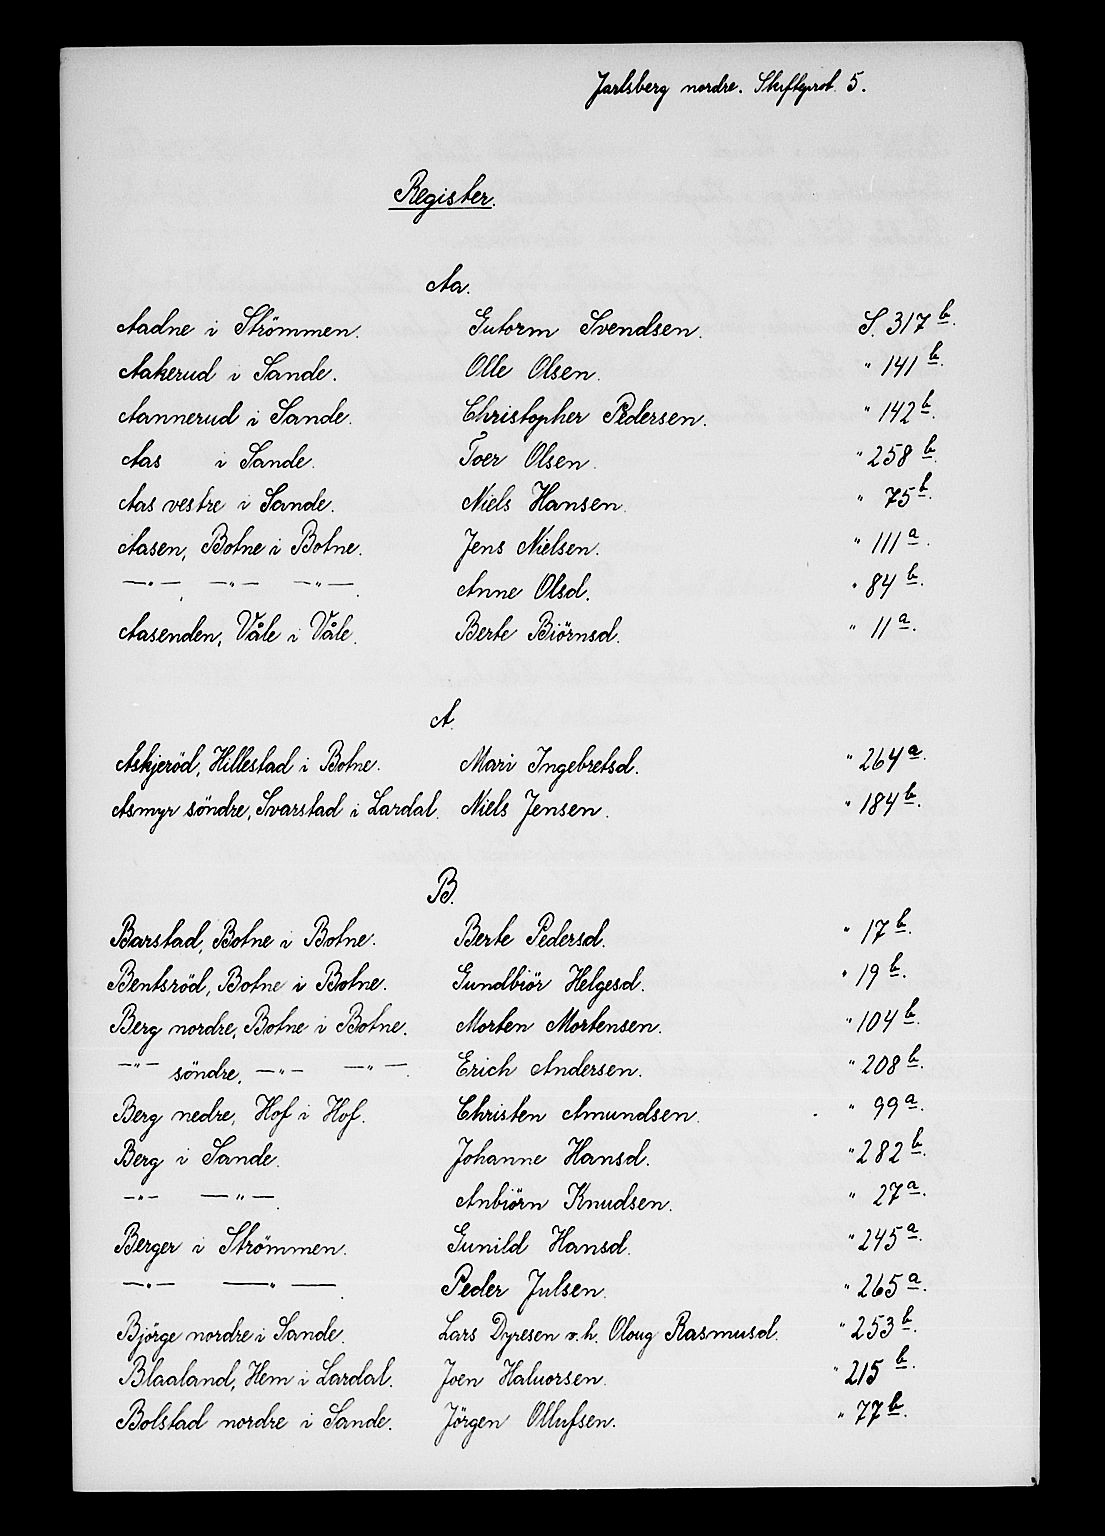 Jarlsberg nordre. Skifteprot. 5.
Register.
Aa.
Aadne i Strömmen. Gutorm Svendsen. S. 317 b.
Aakerud i Sande. Olle Olsen. " 141 b.
Aannerud i Sande. Christopher Pedersen. " 142 b.
Aas i Sande. Toer Olsen. " 258 b.
Aas vestre i Sande. Niels Hansen. " 75 b.
Aasen, Botne i Botne. Jens Nielsen. " 111 a.
—"— , —"— —"—. Anne Olsd. " 84 b.
Aasenden, Våle i Våle. Berte Biörnsd. " 11 a.
A.
Askjeröd, Hillestad i Botne. Mari Ingebretsd. " 264 a.
Asmyr söndre, Svarstad i Lardal. Niels Jensen. " 184 b.
B.
Barstad, Botne i Botne. Berte Pedersd. " 17 b.
Bentsröd, Botne i Botne. Gundbiör Helgesd. " 19 b.
Berg nordre, Botne i Botne. Morten Mortensen. " 104 b.
—"— söndre, —"— —"—. Erich Andersen. " 208 b.
Berg nedre, Hof i Hof. Christen Amundsen. " 99 a.
Berg i Sande. Johanne Hansd. " 282 b.
—"— —"—. Anbiörn Knudsen. " 27 a.
Berger i Strömmen. Gunild Hansd. " 245 a.
—"— —"—. Peder Julsen. " 265 a.
Björge nordre i Sande. Lars Dyresen v.h. Oloug Rasmusd. " 253 b.
Blaaland, Hem i Lardal. Joen Haluorsen. " 215 b.
Bolstad nordre i Sande. Jörgen Ollufsen. " 77 b.